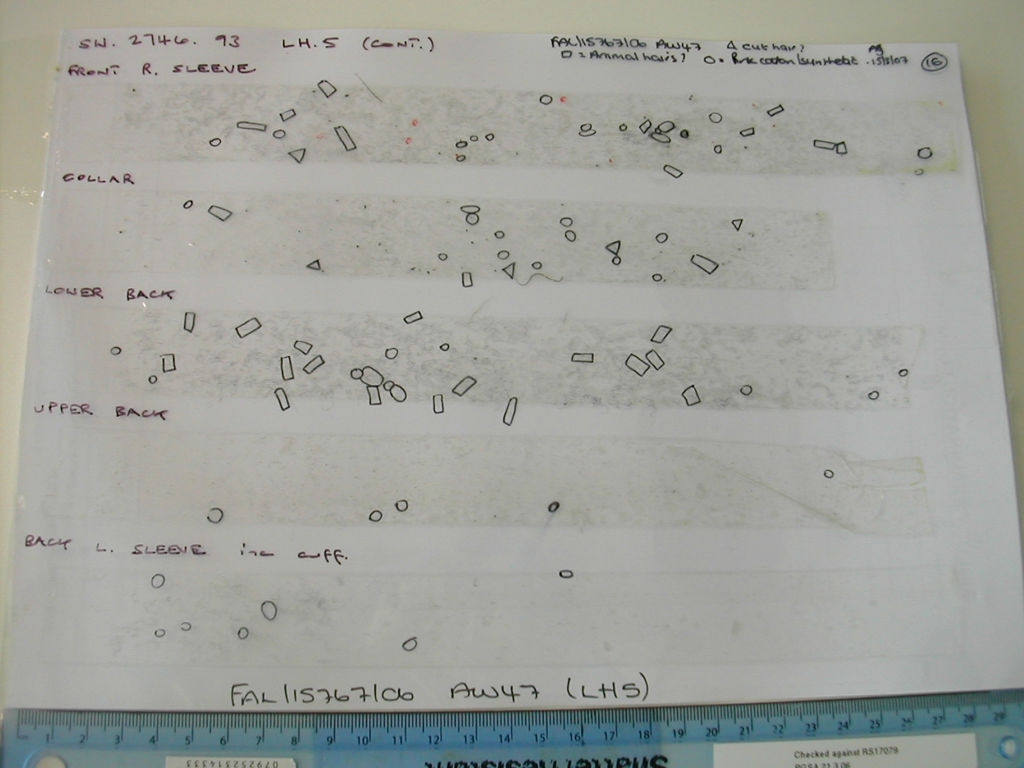 SW. 2746. 93 LH.5 (CONT.)
FAL/15767/06 AW47 Δ cut hair?
□ = Animal hairs? O = Pink cotton/synthetic. 15/3/07 (16)
FRONT R. SLEEVE
COLLAR
LOWER BACK
UPPER BACK
BACK L. SLEEVE inc cuff.
FAL/15767/06 AW47 (LH5)
1 2 3 4 5 6 7 8 9 10 11 12 13 14 15 16 17 18 19 20 21 22 23 24 25 26 27 28 29
Shatter resistant
Checked against RS17079